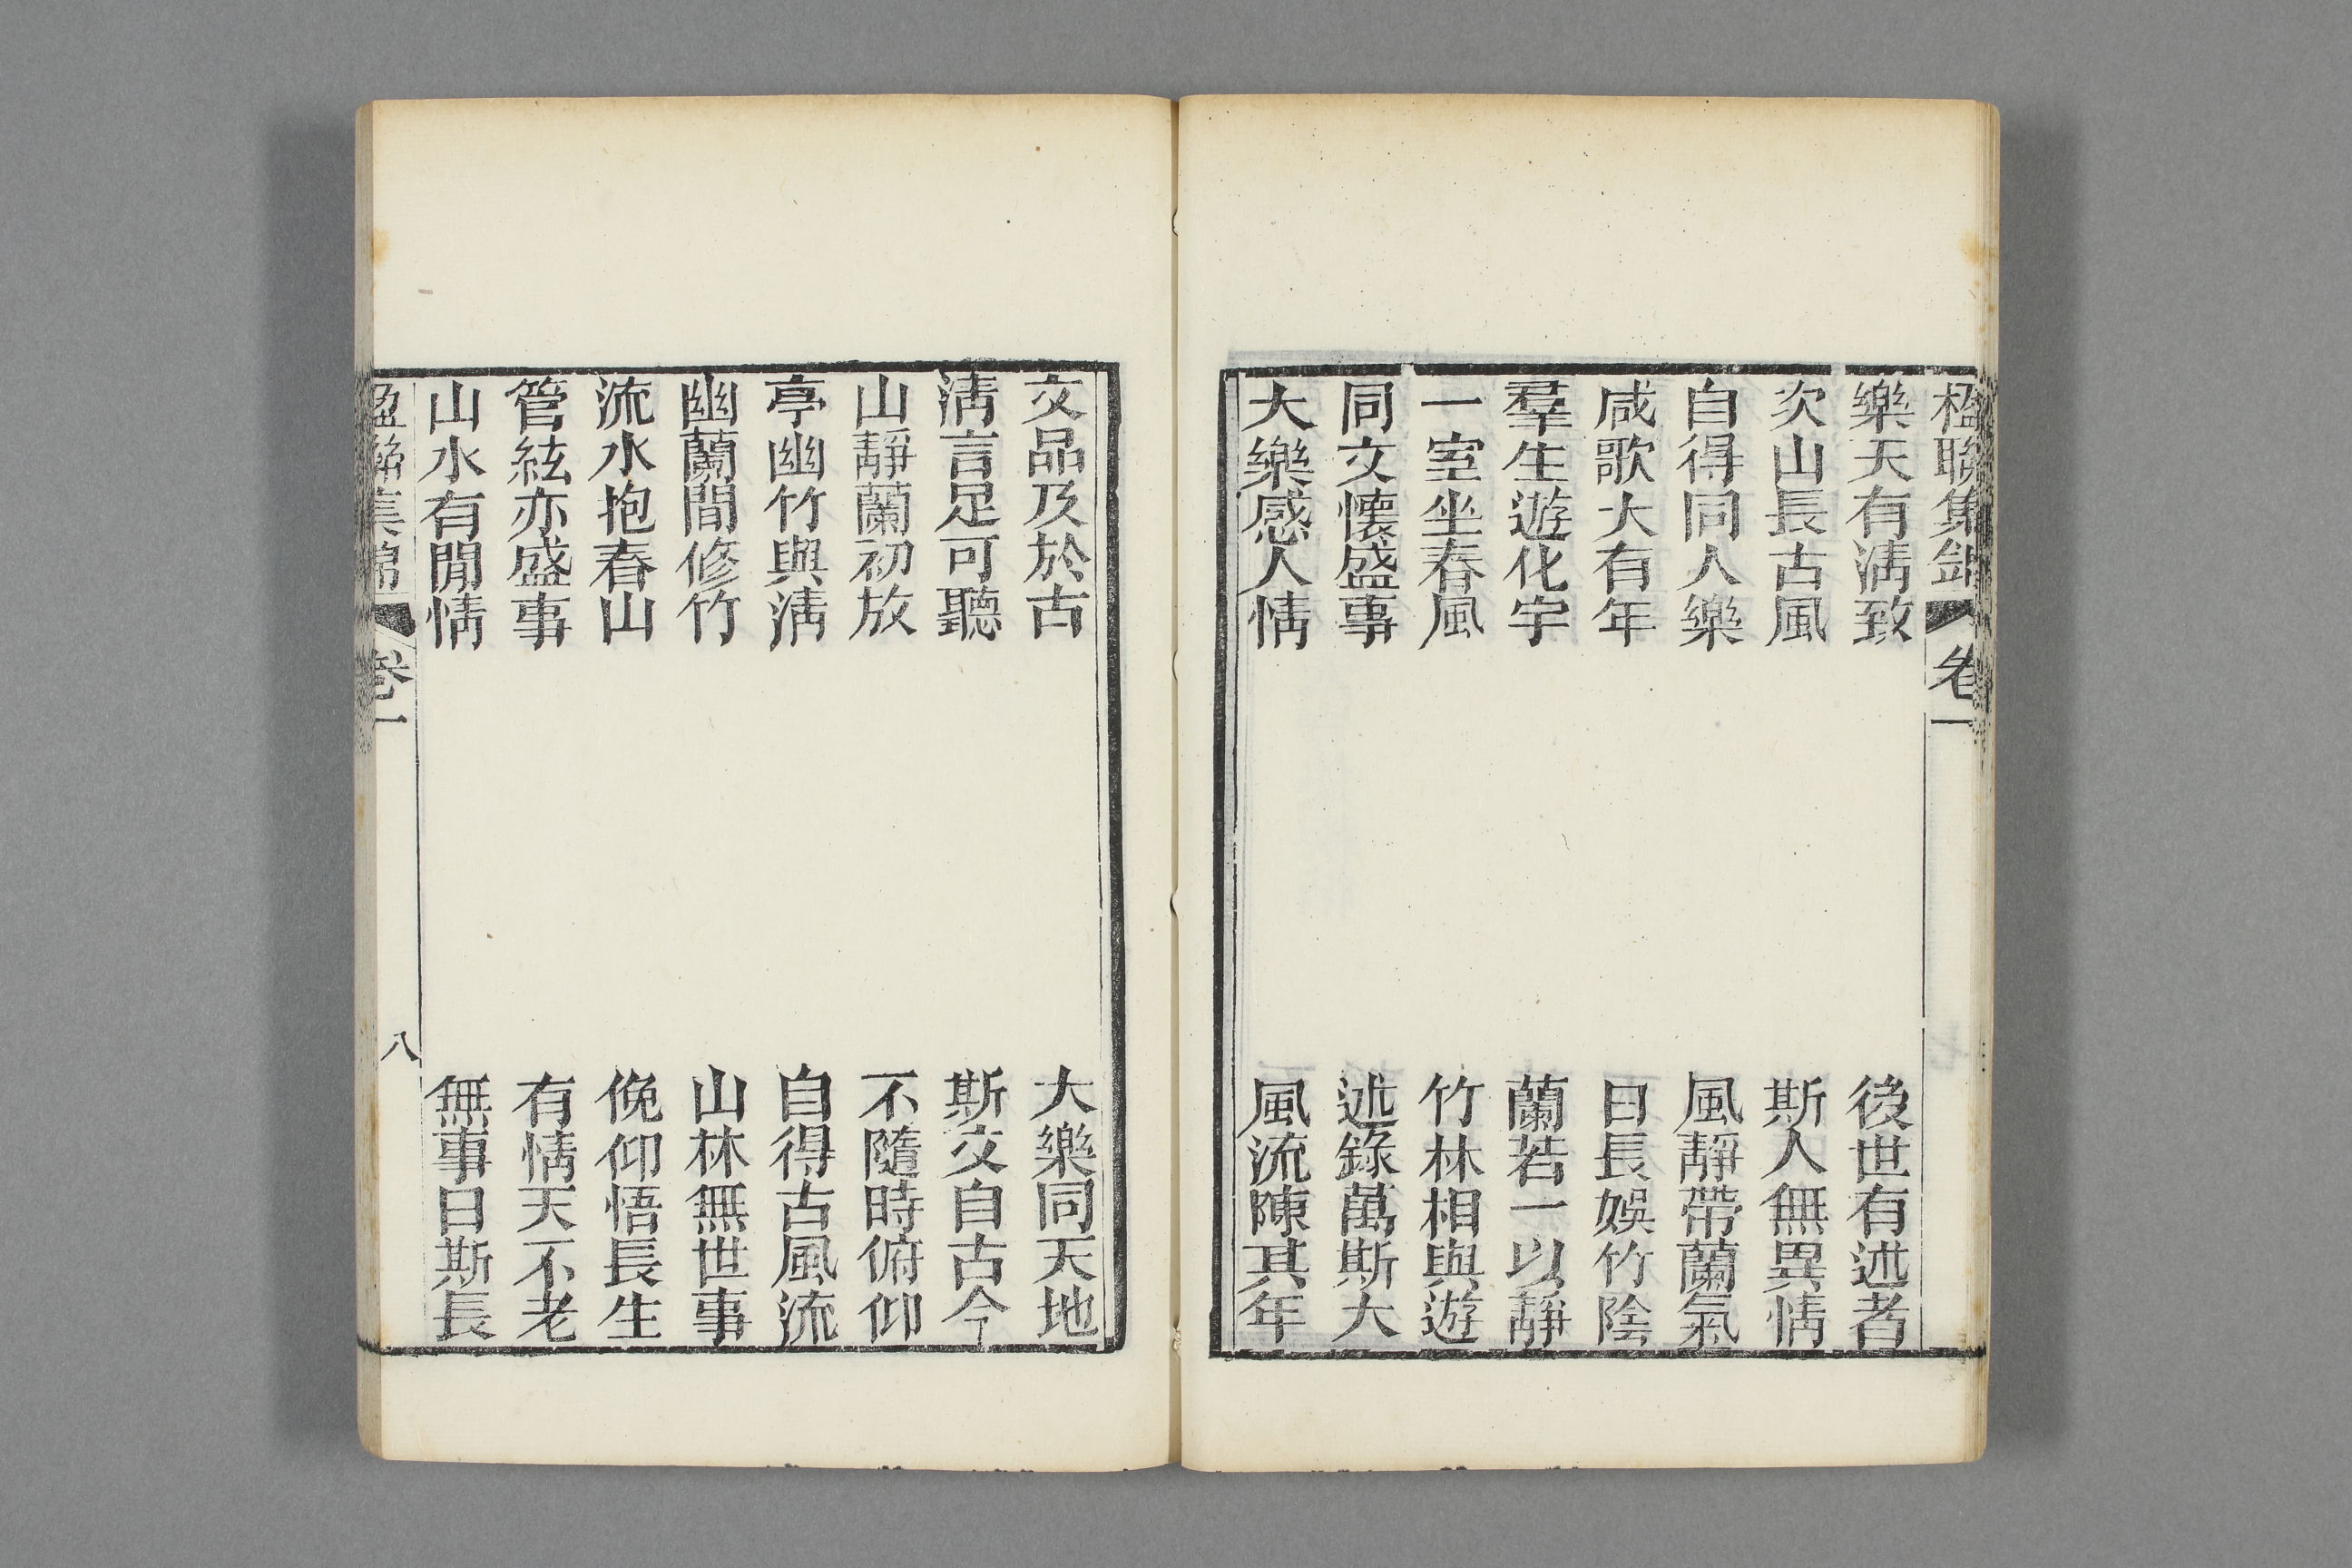 楹聯集錦 卷一
樂天有淸致 後世有述者
次山長古風 斯人無異情
自得同人樂 風靜帶蘭氣
咸歌大有年 日長娛竹陰
羣生遊化宇 蘭若一以靜
一室坐春風 竹林相與遊
同文懷盛事 述錄萬斯大
大樂感人情 風流陳其年
文品及於古 大樂同天地
淸言足可聽 斯文自古今
山靜蘭初放 不隨時俯仰
亭幽竹與淸 自得古風流
幽蘭間修竹 山林無世事
流水抱春山 俛仰悟長生
管絃亦盛事 有情天不老
山水有閒情 無事日斯長
楹聯集錦 卷一 八